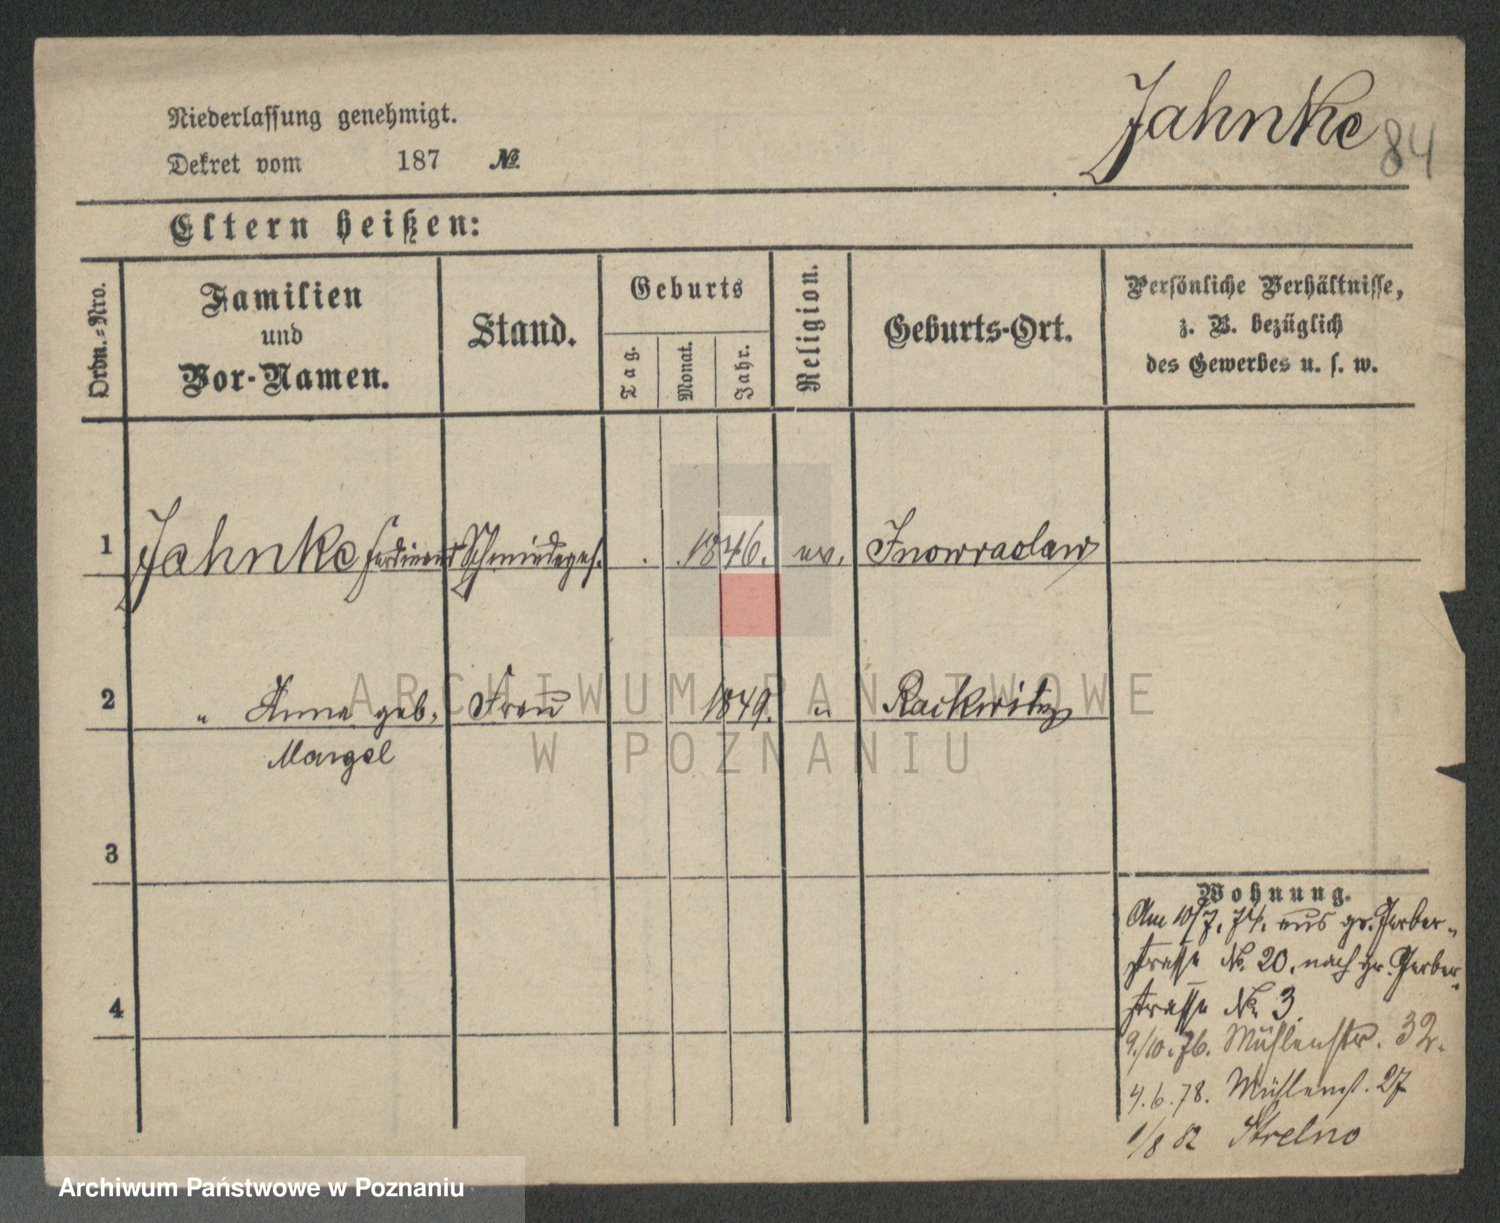 Jahnke
84
Niederlassung genehmigt.
Dekret vom 187 №
Eltern heißen:
Ordn.-Nro.
Familien
und
Vor-Namen.
Stand.
Geburts
Tag.
Monat.
Jahr.
Religion.
Geburts-Ort.
Persönliche Verhältnisse,
z. B. bezüglich
des Gewerbes u. s. w.
1 Jahnke Ferdinand Schmiedeges. 1846. ev. Inowraclaw
2 " Anna geb. Frau 1849. " Rackwitz
Margel
3
4
Wohnung.
Am 10/7. 74. aus gr. Gerber-
strasse No. 20. nach gr. Gerber-
strasse No. 3.
9./10. 76. Mühlenstr. 32.
4.6.78. Mühlenst. 27
1/8 82 Strelno
ARCHIWUM PAŃSTWOWE
W POZNANIU
Archiwum Państwowe w Poznaniu